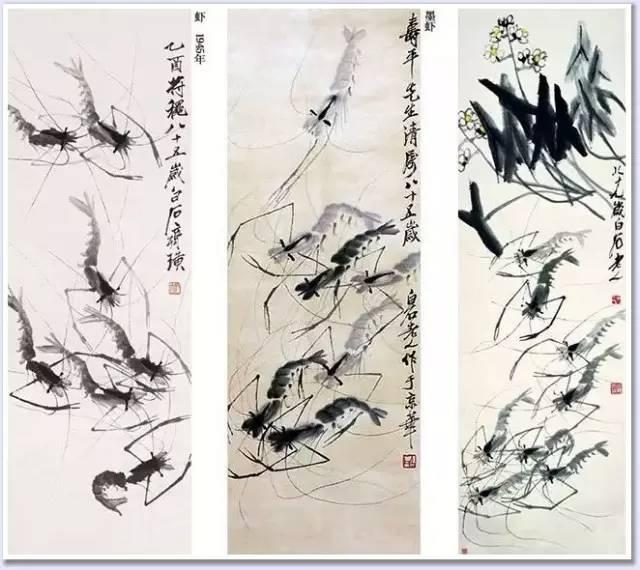 乙酉將龝八十五歲白石齊璜
虾 1945年
壽平先生清屬八十五歲
白石老人作于京華
墨虾
八十九歲白石老人